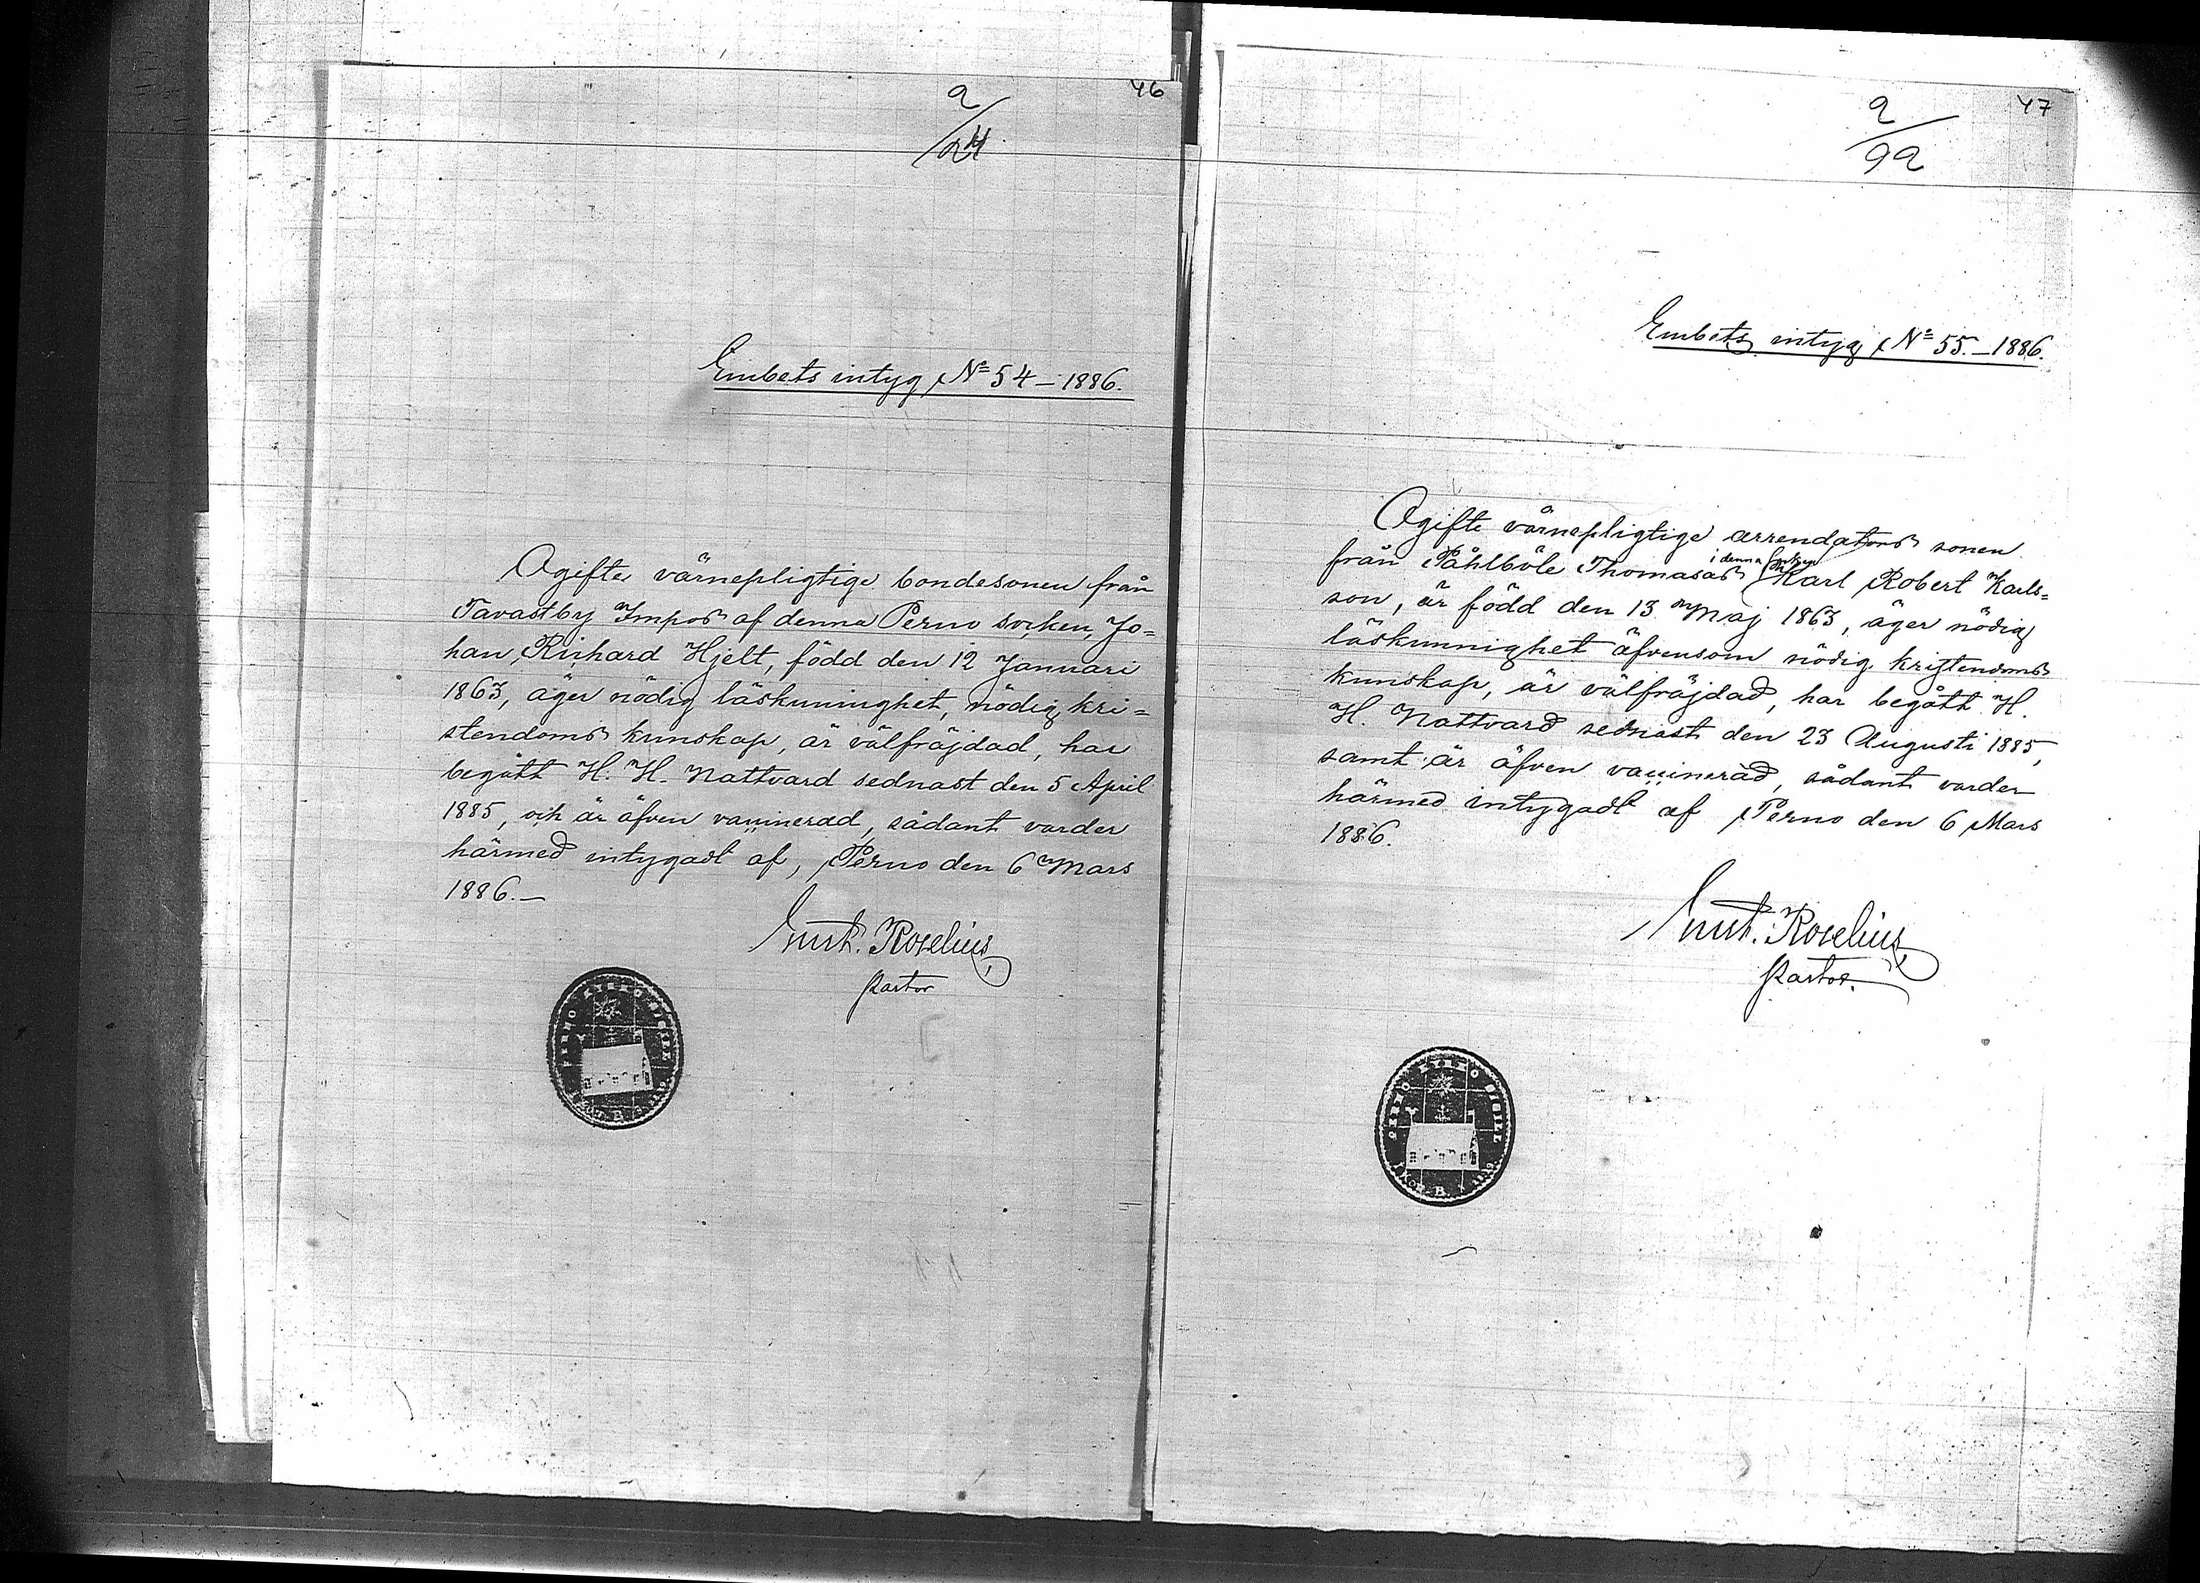 46
2/24
Embets intyg No 54 – 1886.
Ogifte värnepligtige bondesonen från
Tavastby Impos af denna Perno socken, Jo=
han Richard Hjelt, född den 12 Januari
1863, äger nödig läskunnighet, nödig kri=
stendoms kunskap, är välfräjdad, har
begått H. H. Nattvard sednast den 5 April
1885, och är äfven vaccinerad, sådant varder
härmed intygadt af, Perno den 6 Mars
1886.–
Roselius,
Pastor
PERNO KYRKO SIGILL
47
2/92
Embets intyg No 55. – 1886.
Ogifte värnepligtige arrendators sonen
i denna socken
från Påhlböle Thomasas Karl Robert Karls=
son, är född den 13 Maj 1863, äger nödig
läskunnighet äfvensom nödig kristendoms
kunskap, är välfräjdad, har begått H.
H. Nattvard sednast den 23 Augusti 1885,
samt är äfven vaccinerad, sådant varder
härmed intygadt af Perno den 6 Mars
1886.
Roselius,
Pastor.
PERNO KYRKO SIGILL